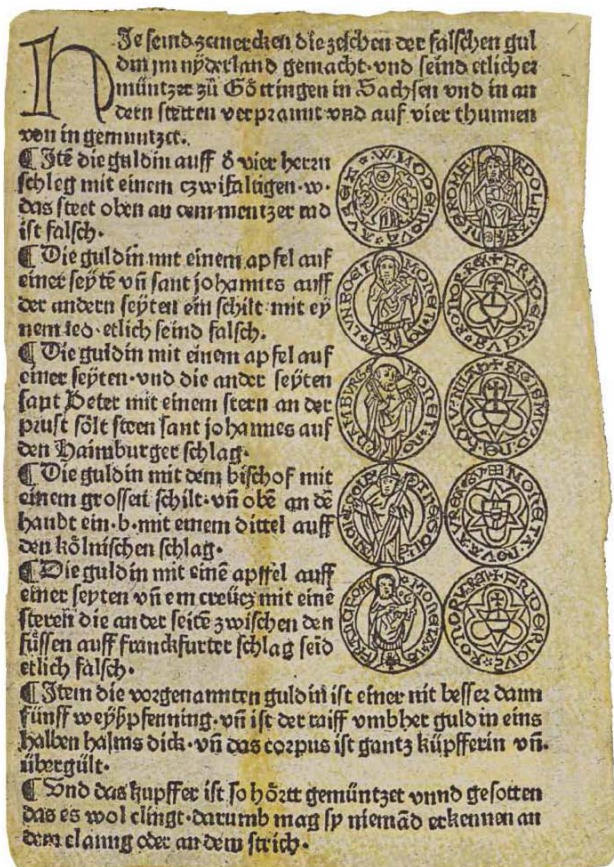 HIe seind zemercken die zeichen der falschen gul
din im nyderland gemacht · vnd seind etlicher
müntzer zů Göttingen in Sachsen vnd in an
dern stetten verprannt vnd auf vier thunnen
von in gemüntzet.
¶ Itē die guldin auff d̄ vier herrn
schleg mit einem czwifaltigen · w ·
das steet oben an dem mentzer rad
ist falsch ·
¶ Die guldin mit einem apfel auf
einer seytē vn̄ sant johannes auff
der andern seyten ein schilt mit ey
nem leo · etlich seind falsch ·
¶ Die guldin mit einem apfel auf
einer seyten · vnd die ander seyten
sant Peter mit einem stern an der
prust sōlt steen sant johannes auf
den Haimburger schlag ·
¶ Die guldin mit dem bischof mit
einem grossen schilt · vn̄ obē an dē
haubt ein · b · mit einem dittel auff
den kölnischen schlag ·
¶ Die guldin mit einē apffel auff
einer seyten vn̄ em creücz mit einē
steren die ander seitē zwischen den
füssen auff franckfurter schlag seid
etlich falsch ·
¶ Item die vorgenannten guldin ist einer nit besser dann
fünff weyßpfenning · vn̄ ist der raiff vmbher guldin eins
halben halms dick · vn̄ das corpus ist gantz küpfferin vn̄ ·
übergült ·
¶ Vnd das kupffer ist so hörtt gemüntzet vnnd gesotten
das es wol clingt · darumb mag sy niemād erkennen an
dem clanng oder an dem strich ·
FRIDERICVS